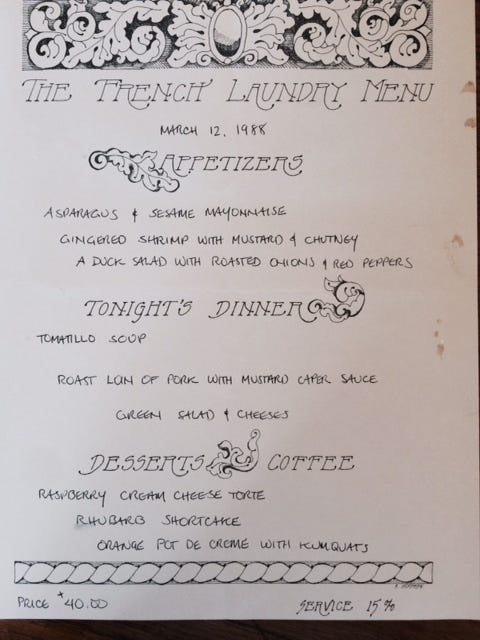 THE FRENCH LAUNDRY MENU
MARCH 12, 1988
APPETIZERS
ASPARAGUS & SESAME MAYONNAISE
GINGERED SHRIMP WITH MUSTARD & CHUTNEY
A DUCK SALAD WITH ROASTED ONIONS & RED PEPPERS
TONIGHT'S DINNER
TOMATILLO SOUP
ROAST LOIN OF PORK WITH MUSTARD CAPER SAUCE
GREEN SALAD & CHEESES
DESSERTS COFFEE
RASPBERRY CREAM CHEESE TORTE
RHUBARB SHORTCAKE
ORANGE POT DE CREME WITH KUMQUATS
PRICE $40.00 SERVICE 15%